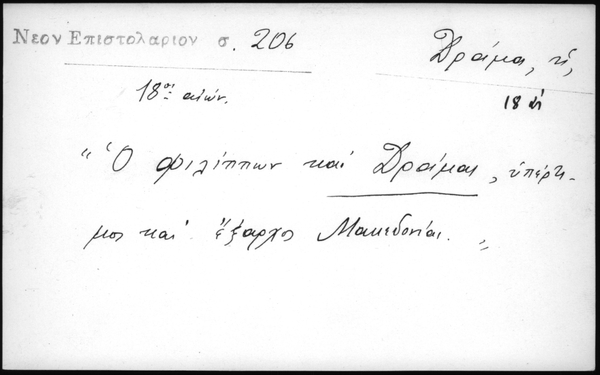 Νεον Επιστολαριον σ. 206
Δράμα, ἡ,
18ος αἰών.
18 αἰ
"Ὁ Φιλίππων καὶ Δράμας, ὑπέρτι-
μος καὶ ἔξαρχος Μακεδονίας."